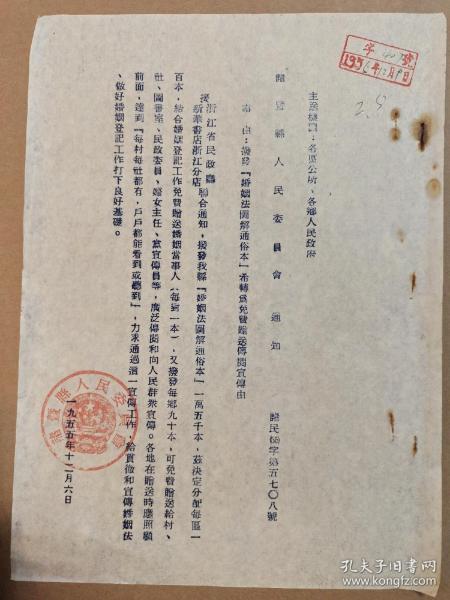 主送機關：各區公所、各鄉人民政府
諸暨縣人民委員會通知
諸民字第五七〇八號
事由：撥發『婚姻法圖解通俗本』希轉為免費贈送傳閱宣傳由
接浙江省民政廳
新華書店浙江分店聯合通知，撥發我縣『婚姻法圖解通俗本』一萬五千本，茲決定分配每區一
百本，結合婚姻登記工作免費贈送婚姻當事人（每對一本），又撥發每鄉九十本，可免費贈送給村、
社、圖書室、民政委員、婦女主任、黨宣傳員等，廣泛傳閱和向人民群衆宣傳。各地在贈送時應照顧
前面，達到『每村每社都有，戶戶都能看到或聽到』，力求通過這一宣傳工作，給貫徹和宣傳婚姻法
、做好婚姻登記工作打下良好基礎。
諸暨縣人民委員會
一九五五年十二月六日
孔夫子旧书网
www.kongfz.com